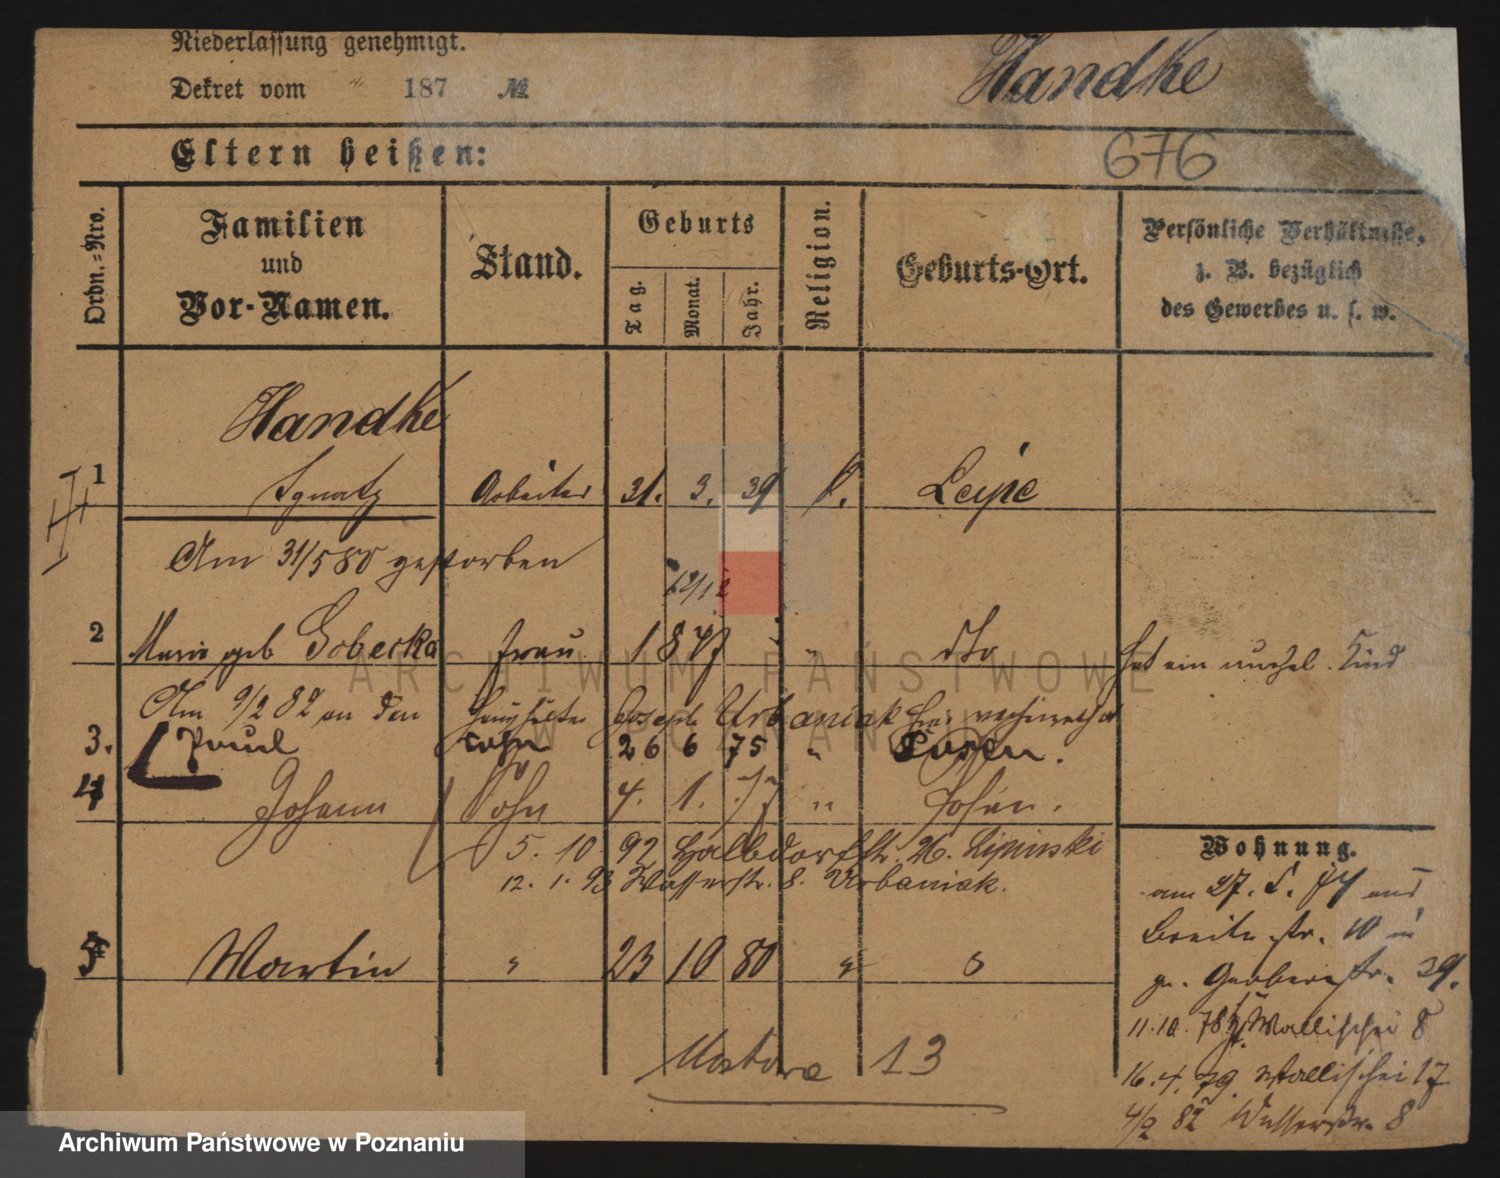 Niederlassung genehmigt.
Dekret vom 187 №
Handke
Eltern heißen:
676
Ordn.=Nro.
Familien
und
Vor-Namen.
Stand.
Geburts
Tag.
Monat.
Jahr.
Religion.
Geburts-Ort.
Persönliche Verhältnisse,
z. B. bezüglich
des Gewerbes u. s. w.
Handke
1 Ignatz Arbeiter 31. 3. 39 k. Leipe
Am 31/5 80 gestorben
12/12
2 Marie geb Gobecka Frau 1 8 47 " dto hat ein unehel. Kind
Am 9/2 82 an den Haushälter Joseph Urbaniak hier verheirathet
3. Paul Sohn 26 6 75 " Posen.
4 Johann Sohn 4. 1. 77 " Posen.
5. 10 92 Halbdorfstr. 26. Lipinski
12. 1. 93 Wasserstr. 8. Urbaniak.
5 Martin " 23 10 80 "
13
Wohnung.
am 27. 5. 74 aus
Breite str. 10 in
gr. Gerberstr. 39.
11.10. 78 Wallischei 8
16. 4. 79. Wallischei 17
4/2 82 Wasserstr. 8
ARCHIWUM PAŃSTWOWE
W POZNANIU
Archiwum Państwowe w Poznaniu